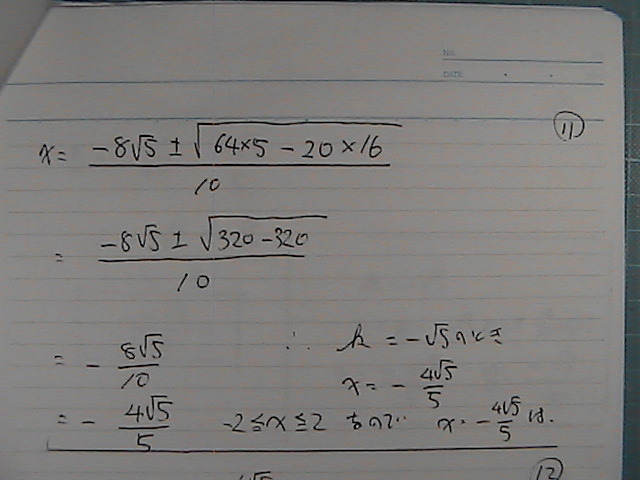 NO.
DATE
⑪
x = (-8√5 ± √(64×5 - 20×16)) / 10
= (-8√5 ± √(320-320)) / 10
= - 8√5/10 ∴ k = -√5のとき
x = - 4√5/5
= - 4√5/5 -2≦x≦2 なので x = - 4√5/5 は.
⑫